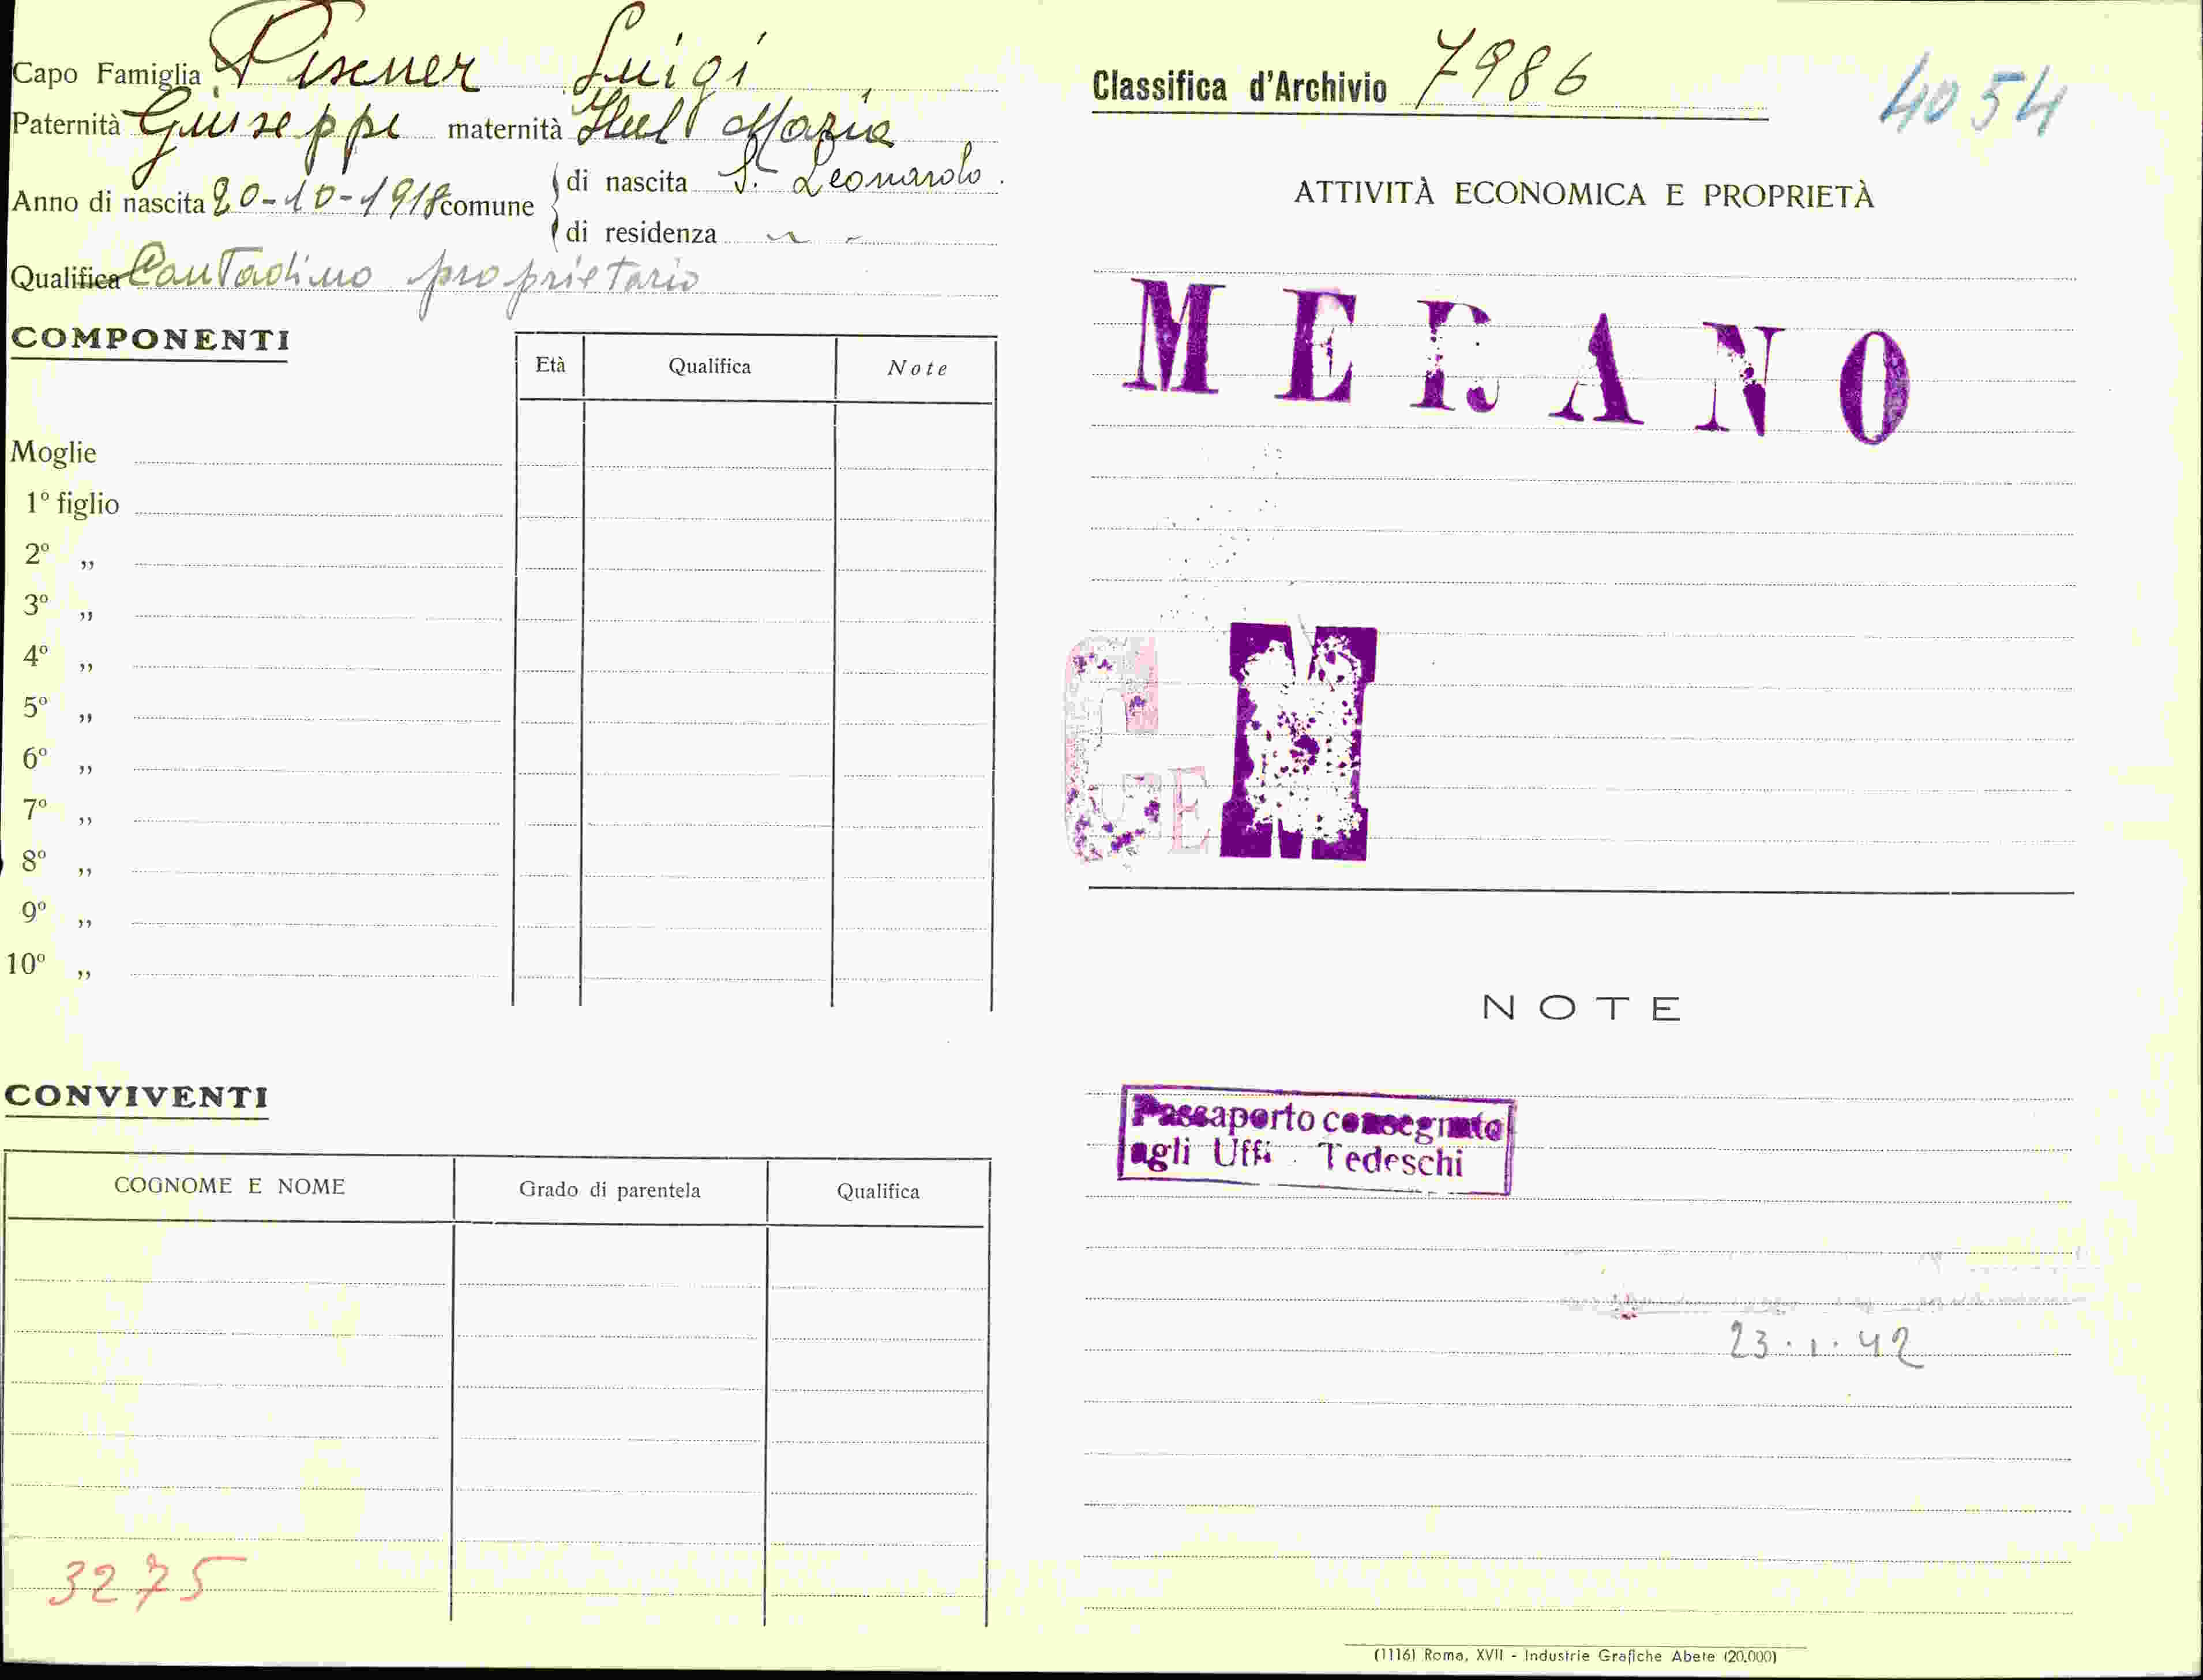 Capo Famiglia Pixner Luigi
Paternità Giuseppe maternità Maria
Anno di nascita 20-10-1918 comune di nascita S. Leonardo
di residenza " "
Qualifica Contadino proprietario
COMPONENTI
Età Qualifica Note
Moglie
1º figlio
2º "
3º "
4º "
5º "
6º "
7º "
8º "
9º "
10º "
CONVIVENTI
COGNOME E NOME Grado di parentela Qualifica
3275
Classifica d'Archivio 7986
4054
ATTIVITÀ ECONOMICA E PROPRIETÀ
MERANO
E
N
NOTE
Passaporto consegnato
agli Uffi. Tedeschi
23.1.42
(1116) Roma, XVII - Industrie Grafiche Abete (20.000)